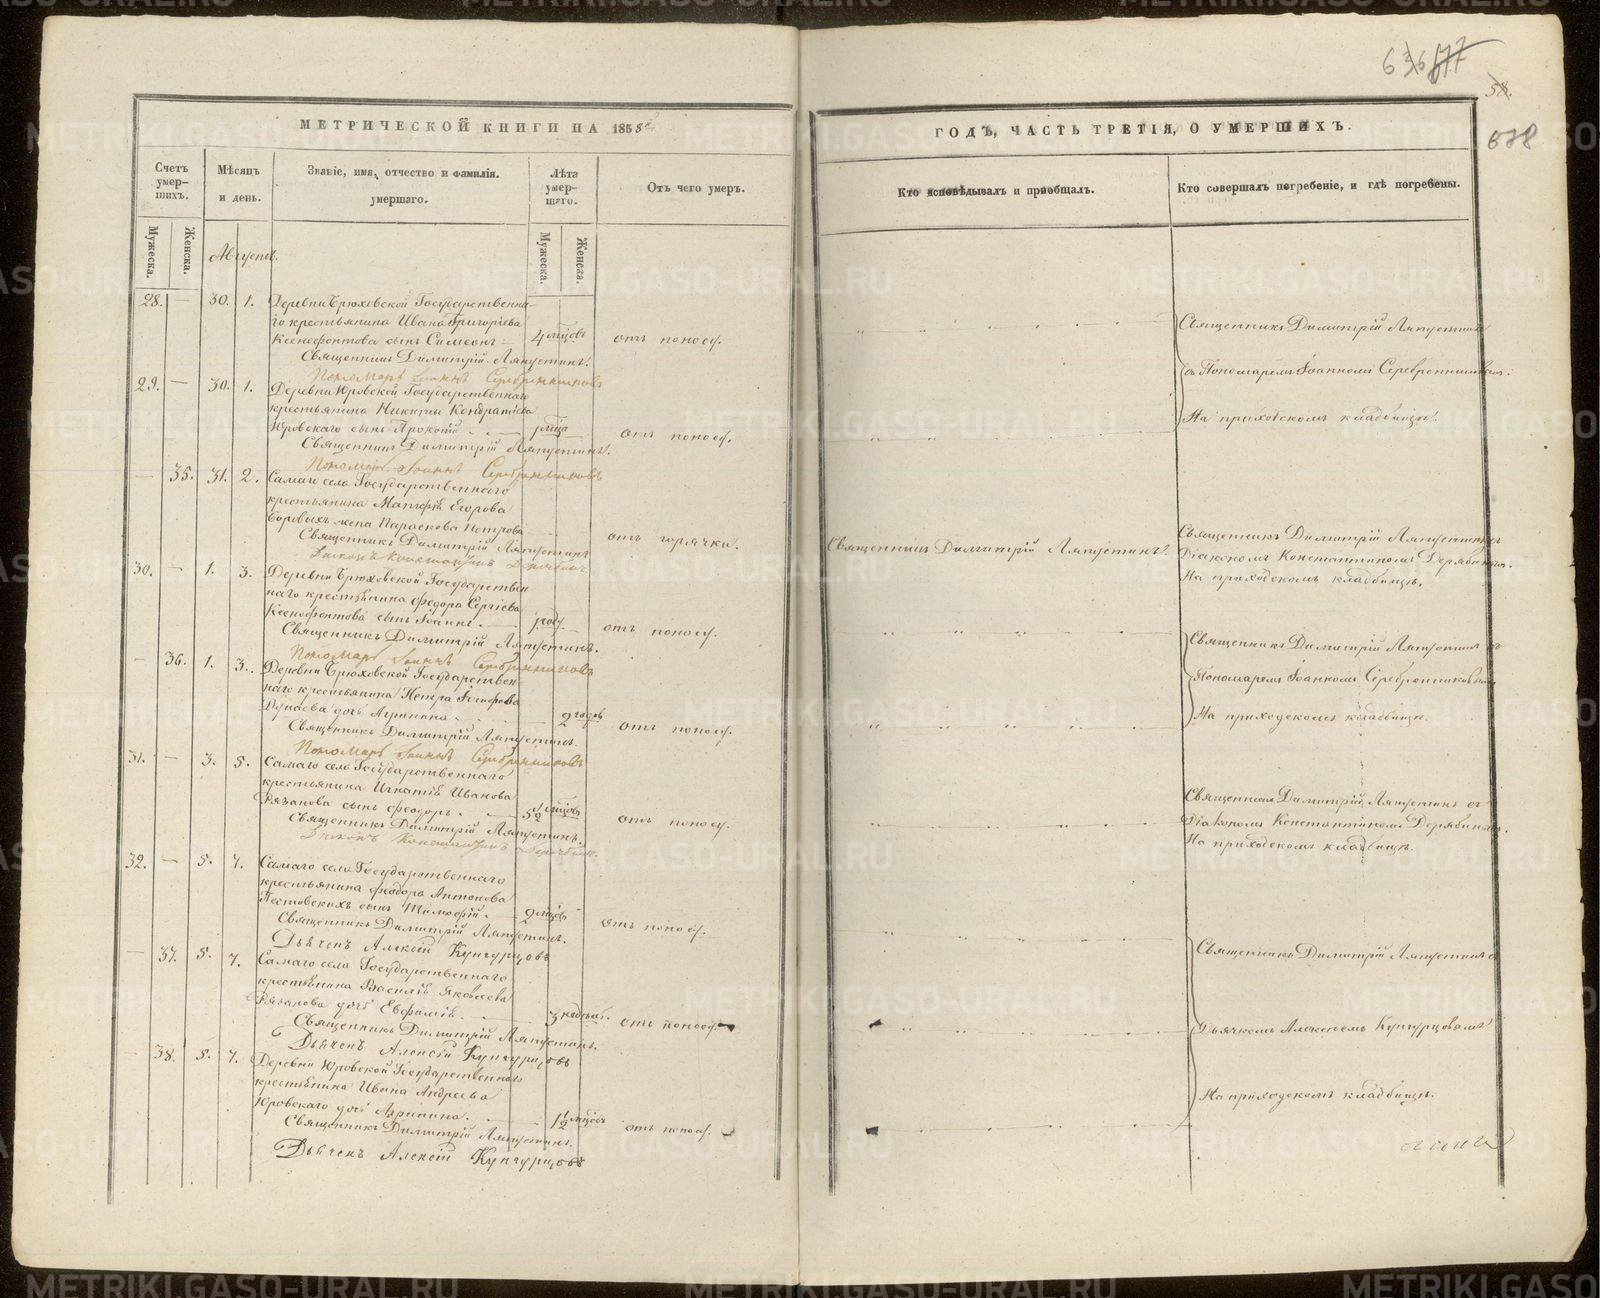 636 577
58.
638
МЕТРИЧЕСКОЙ КНИГИ НА 1858й
ГОДЪ, ЧАСТЬ ТРЕТІЯ, О УМЕРШИХЪ.
Счетъ умер-шихъ.
Мѣсяцъ и день.
Званіе, имя, отчество и фамилія. умершаго.
Лѣта умер-шаго.
Отъ чего умеръ.
Кто исповѣдывалъ и пріобщалъ.
Кто совершалъ погребеніе, и гдѣ погребены.
Мужеска. Женска.
Мужеска. Женска.
Августъ.
28. — 30. 1. Деревни Брюховской Государственна-
го крестьянина Ивана Григоріева
Ксенофонтова сынъ Симеонъ — 4 мѣсцовъ отъ поноса.
Священникъ Димитрій Ляпустинъ.
Пономарь Іоаннъ Серебренниковъ
Священникъ Димитрій Ляпустинъ
съ Пономаремъ Іоанномъ Серебренниковымъ.
На приходскомъ кладбищѣ.
29. — 30. 1. Деревни Юровской Государственнаго
крестьянина Никиты Кондратіева
Юровскаго сынъ Прокопій 1 мѣсца отъ поноса.
Священникъ Димитрій Ляпустинъ.
Пономарь Іоаннъ Серебренниковъ
— 35. 31. 2. Самаго села Государственнаго
крестьянина Матфѣя Егорова
жена Параскова Петрова отъ горячки.
Священникъ Димитрій Ляпустинъ
Діаконъ Константинъ Дерябинъ
Священникъ Димитрій Ляпустинъ.
Священникъ Димитрій Ляпустинъ съ
Діакономъ Константиномъ Дерябинымъ.
На приходскомъ кладбищѣ.
30. — 1. 3. Деревни Брюховской Государствен
наго крестьянина Федора Сергіева
Ксенофонтова сынъ Іоаннъ. 1 году отъ поноса.
Священникъ Димитрій Ляпустинъ.
Пономарь Іоаннъ Серебренниковъ
Священникъ Димитрій Ляпустинъ съ
Пономаремъ Іоанномъ Серебренниковымъ
На приходскомъ кладбищѣ.
— 36. 1. 3. Деревни Брюховской Государствен
наго крестьянина Петра Іосифова
Дунаева дочь 2 годовъ отъ поноса.
Священникъ Димитрій Ляпустинъ.
Пономарь Іоаннъ Серебренниковъ
31. — 3. 5. Самаго села Государственнаго
крестьянина Игнатія Иванова
Рязанова сынъ Феодоръ. 5½ мѣсцовъ отъ поноса.
Священникъ Димитрій Ляпустинъ.
Діаконъ Константинъ Дерябинъ.
Священникъ Димитрій Ляпустинъ съ
Діакономъ Константиномъ Дерябинымъ.
На приходскомъ кладбищѣ.
32. — 5. 7. Самаго села Государственнаго
крестьянина Феодора Антонова
Пестовскихъ сынъ Тимофій. 2 мѣсцовъ отъ поноса.
Священникъ Димитрій Ляпустинъ.
Дьячекъ Алексій Кунгурцовъ
Священникъ Димитрій Ляпустинъ съ
Дьячкомъ Алексѣемъ Кунгурцовымъ
На приходскомъ кладбищѣ.
— 37. 5. 7. Самаго села Государственнаго
крестьянина Василія Яковлева
Рязанова дочь Евфимія. 3 недѣль. отъ поноса.
Священникъ Димитрій Ляпустинъ.
Дьячекъ Алексій Кунгурцовъ
— 38. 5. 7. Деревни Юровской Государственнаго
крестьянина Ивана Андреева
Юровскаго дочь Агрипина. 1½ мѣсцовъ отъ поноса.
Священникъ Димитрій Ляпустинъ.
Дьячекъ Алексій Кунгурцовъ
METRIKI.GASO-URAL.RU